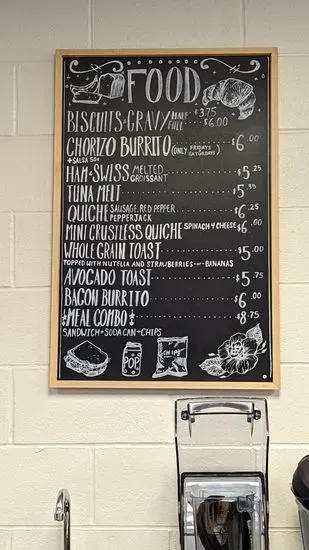 FOOD
BISCUITS+GRAVY HALF $3.75
FULL $6.00
CHORIZO BURRITO (ONLY FRIDAYS SATURDAYS) $6.00
+SALSA 50¢
HAM+SWISS MELTED CROISSANT $5.25
TUNA MELT $5.95
QUICHE SAUSAGE, RED PEPPER, PEPPERJACK $6.25
MINI CRUSTLESS QUICHE SPINACH & CHEESE $6.00
WHOLE GRAIN TOAST $5.00
TOPPED WITH NUTELLA AND STRAWBERRIES -OR- BANANAS
AVOCADO TOAST $5.75
BACON BURRITO $6.00
MEAL COMBO $8.75
SANDWICH+SODA CAN+CHIPS
POP
CHIPS